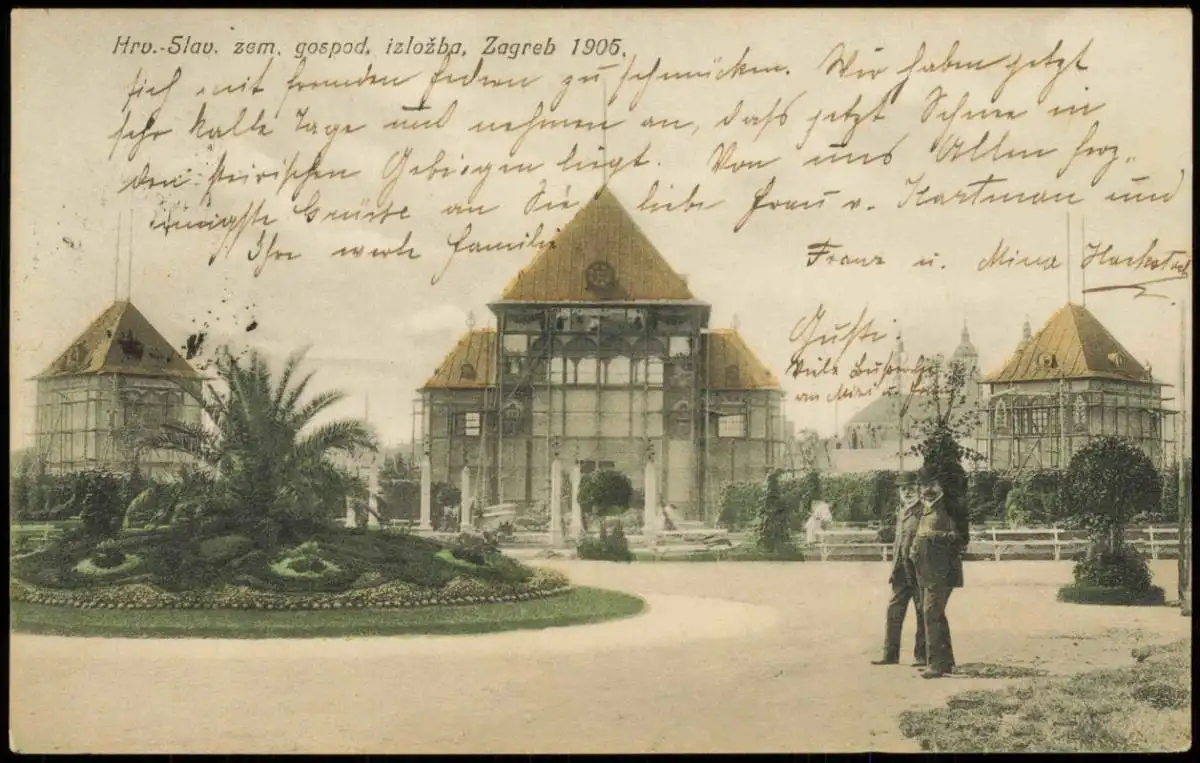 Hrv.-Slav. zem. gospod. izložba, Zagreb 1906.
sich mit fremden Federn zu schmücken. Wir haben jetzt
sehr kalte Tage und nehmen an, daß jetzt Schnee in
den steirischen Gebirgen liegt. Von uns Allen herz-
innigste Grüße an Sie liebe Frau v. Hartman und
Ihre werte Familie
Franz u. Mina
Gusti
Viele
an Mizi u.